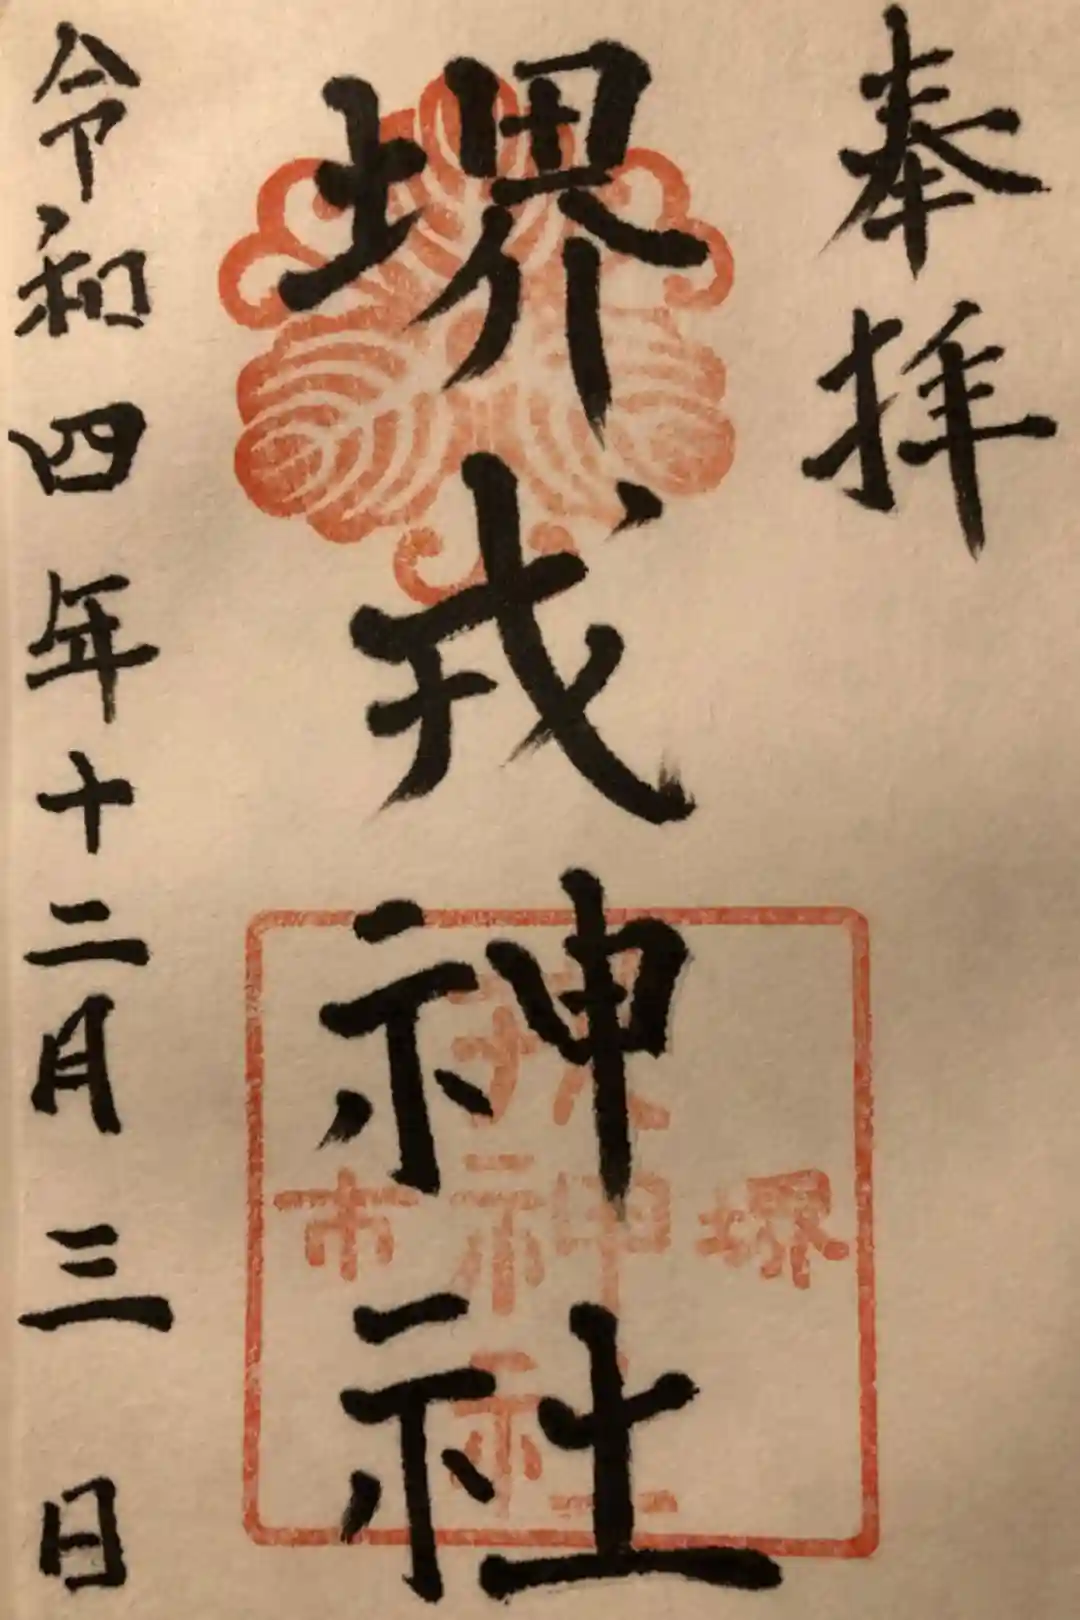 奉拝
堺戎神社
令和四年十二月三日
堺市
戎神社